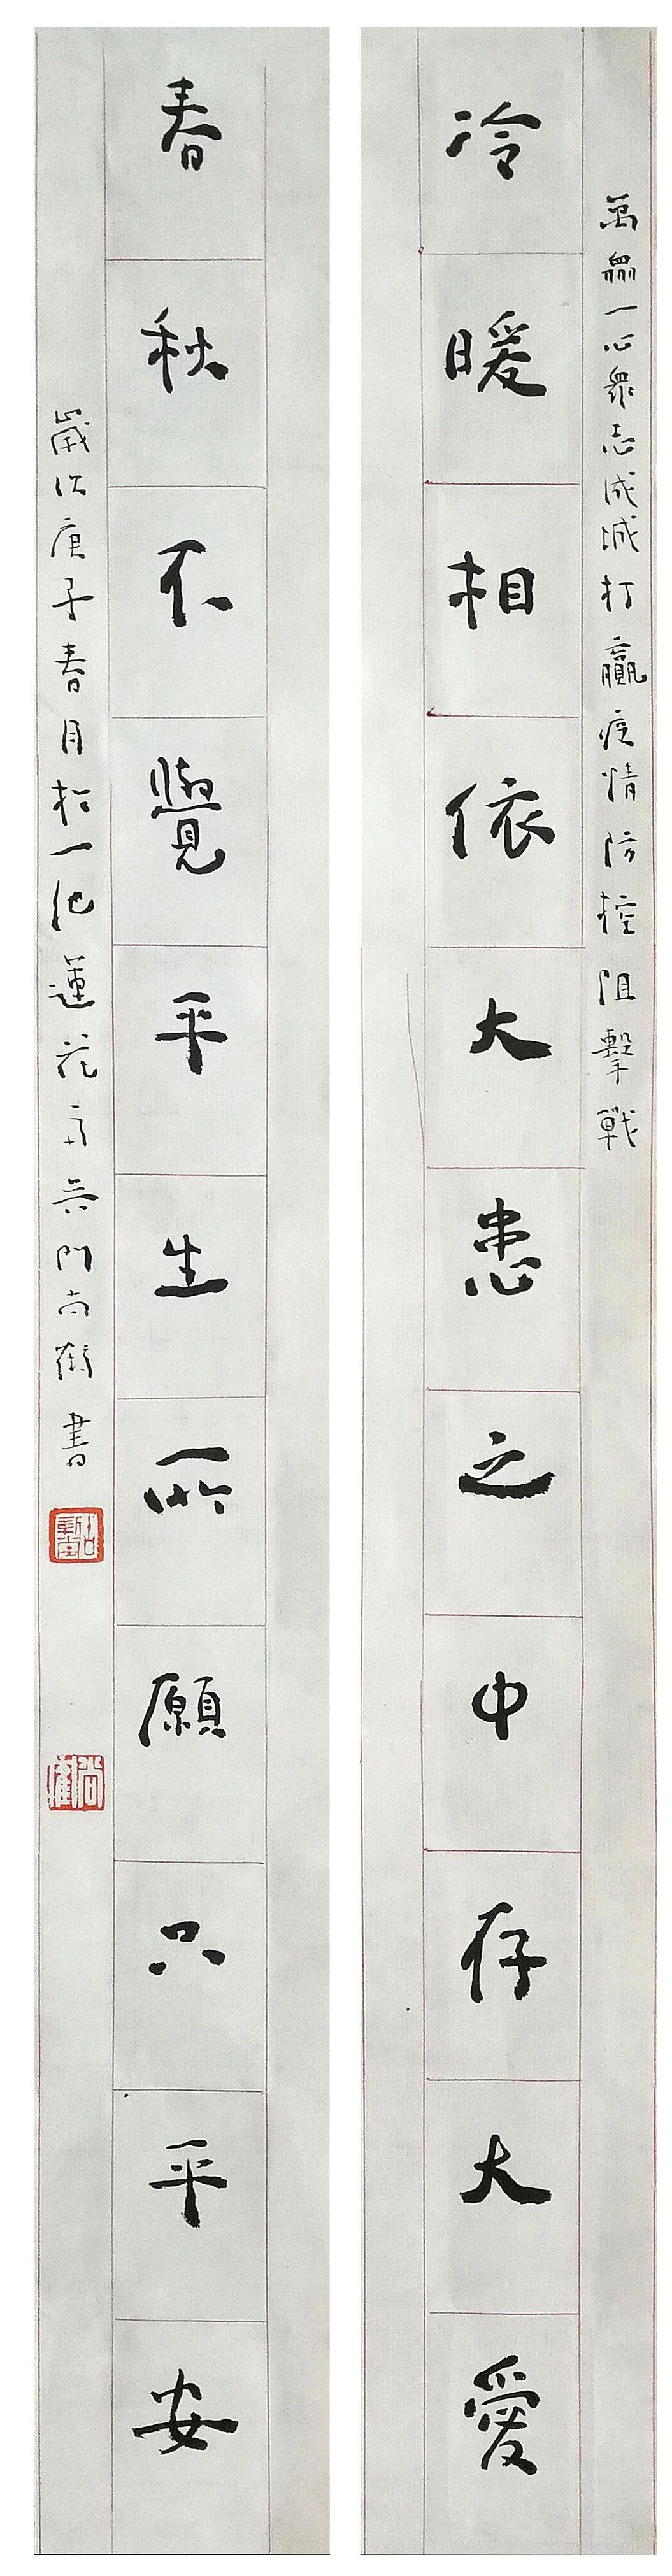 萬衆一心衆志成城打贏疫情防控阻擊戰
冷暖相依大患之中存大愛
春秋不覺平生所願只平安
歲次庚子春月於一池蓮花
吳門尚
書